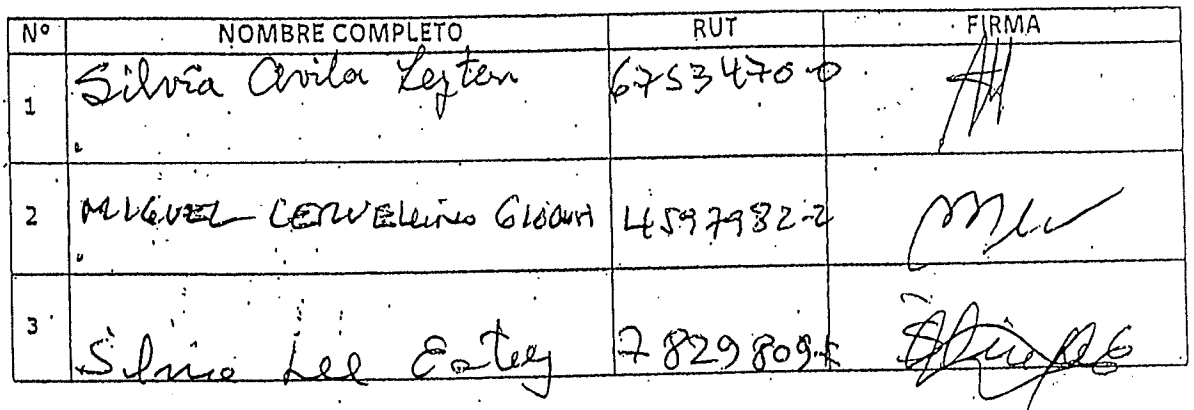 Nº NOMBRE COMPLETO RUT FIRMA
1 Silvia Avila Leyten 6753470-0
2 MIGUEL CERVELLINO GIOANI 4597982-2
3 Silvia Lee 7829809-